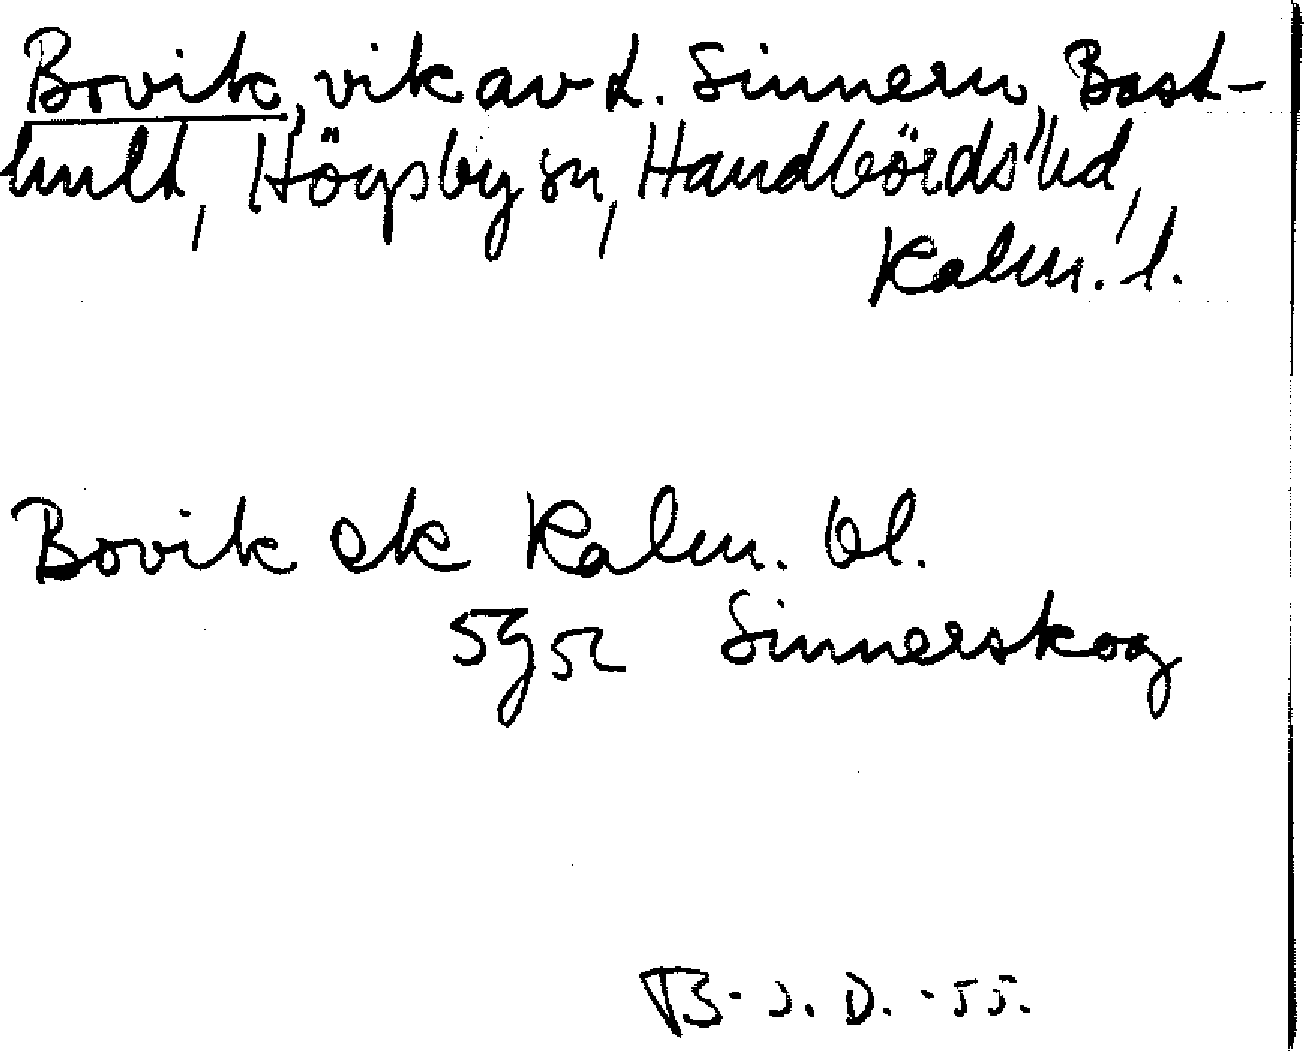 Bovik, vik av L. Sinnern, Bast-
hult, Högsby sn, Handbörds hd,
Kalm. l.
Bovik ek Kalm. bl.
5g52 Sinnerskog
B-J.D.-55.